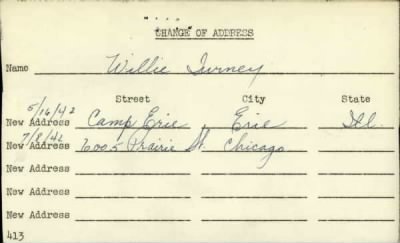 CHANGE OF ADDRESS
Name Willie Turney
Street City State
5/16/42
New Address Camp Erie, Erie Ill.
7/8/42
New Address 6005 Prairie St. Chicago
New Address
New Address
New Address
413